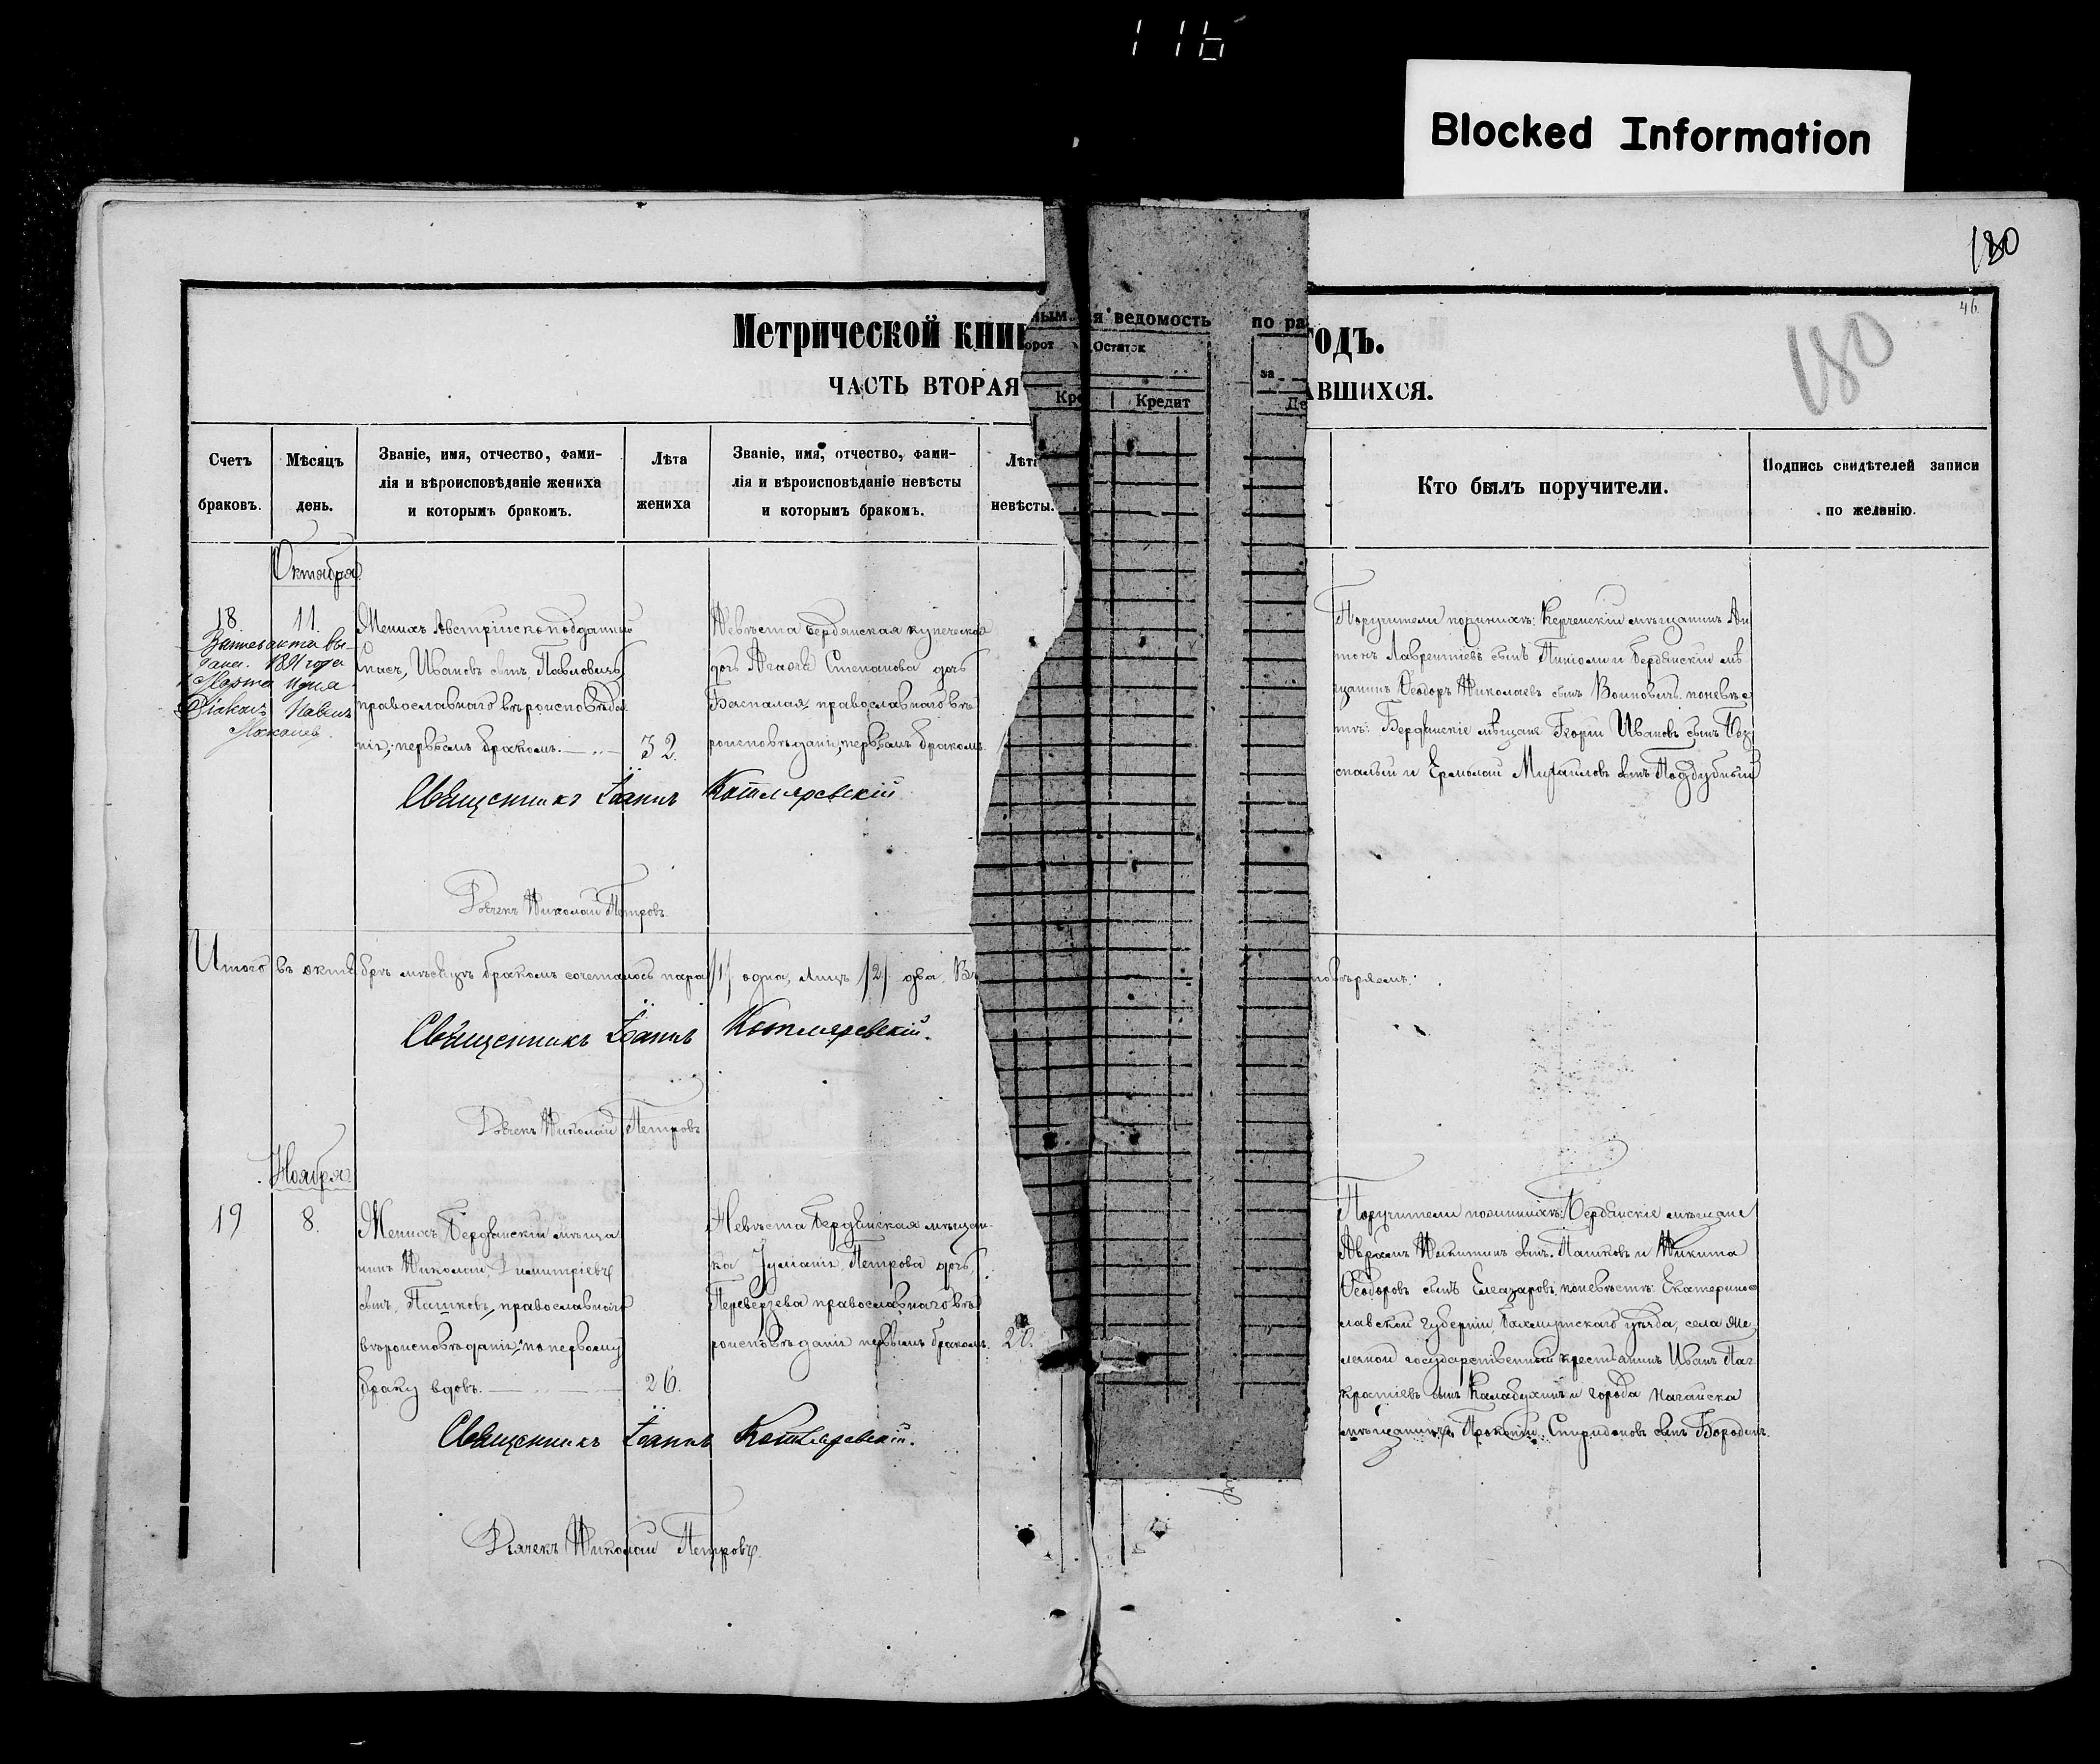 116
Blocked Information
180
46
180
Метрической кни
годъ.
ЧАСТЬ ВТОРАЯ
АВШИХСЯ.
я ведомость по ра
орот Остаток
за
Кре Кредит Де
Счетъ браковъ.
Мѣсяцъ день.
Званіе, имя, отчество, фами-
лія и вѣроисповѣданіе жениха
и которымъ бракомъ.
Лѣта жениха
Званіе, имя, отчество, фами-
лія и вѣроисповѣданіе невѣсты
и которымъ бракомъ.
Лѣта
невѣсты.
Кто былъ поручители.
Подпись свидѣтелей записи
по желанію.
Октября
18. 11.
1891 года
Марта
Женихъ Австрійскоподданный
Спасъ, Ивановъ сынъ, Павловичъ
православнаго вѣроисповѣда-
нія, первымъ бракомъ.
32.
Невѣста Бердянская купеческая
дочь Агафія Степанова дочь
Безпалая, православнаго вѣ-
роисповѣданія, первымъ бракомъ.
Поручители по женихѣ: Керченскій мѣщанинъ Ан
тонъ Лаврентіевъ сынъ и Бердянскій мѣ
щанинъ Ѳеодоръ Николаевъ сынъ Воиновичъ. по невѣс
тѣ: Бердянскіе мѣщане Георгій Ивановъ сынъ Без
палый и Ермолай Михайловъ сынъ Поддубный
Священникъ Іоаннъ Котляревскій
Дячекъ Николай Петровъ.
Итого въ октябрѣ мѣсяцѣ бракомъ сочеталось пара /1/ одна, лицъ /2/ два. Въ
Священникъ Іоаннъ Котляревскій.
Дячекъ Николай Петровъ
Ноября
19 8.
Женихъ Бердянскій мѣща
нинъ Николай, Димитріевъ
сынъ, Пашковъ, православнаго
вѣроисповѣданія, по первому
браку вдовъ.
26.
Невѣста Бердянская мѣщан-
ка Іуліанія Петрова дочь,
Переверзева православнаго вѣ
роисповѣданія первымъ бракомъ.
20.
Поручители по женихѣ: Бердянскіе мѣщане
Аврамъ Никитинъ сынъ Пашковъ и Никита
Ѳеодоровъ сынъ Елеазаровъ, по невѣстѣ: Екатерино
славской губерніи, Бахмутскаго уѣзда, села Же
леной государственный крестьянинъ Иванъ Пан
кратіевъ сынъ Калабухинъ и города Нагайска
мѣщанинъ Прокопій Спиридоновъ сынъ Бородинъ.
Священникъ Іоаннъ Котляревскій.
Дячекъ Николай Петровъ.